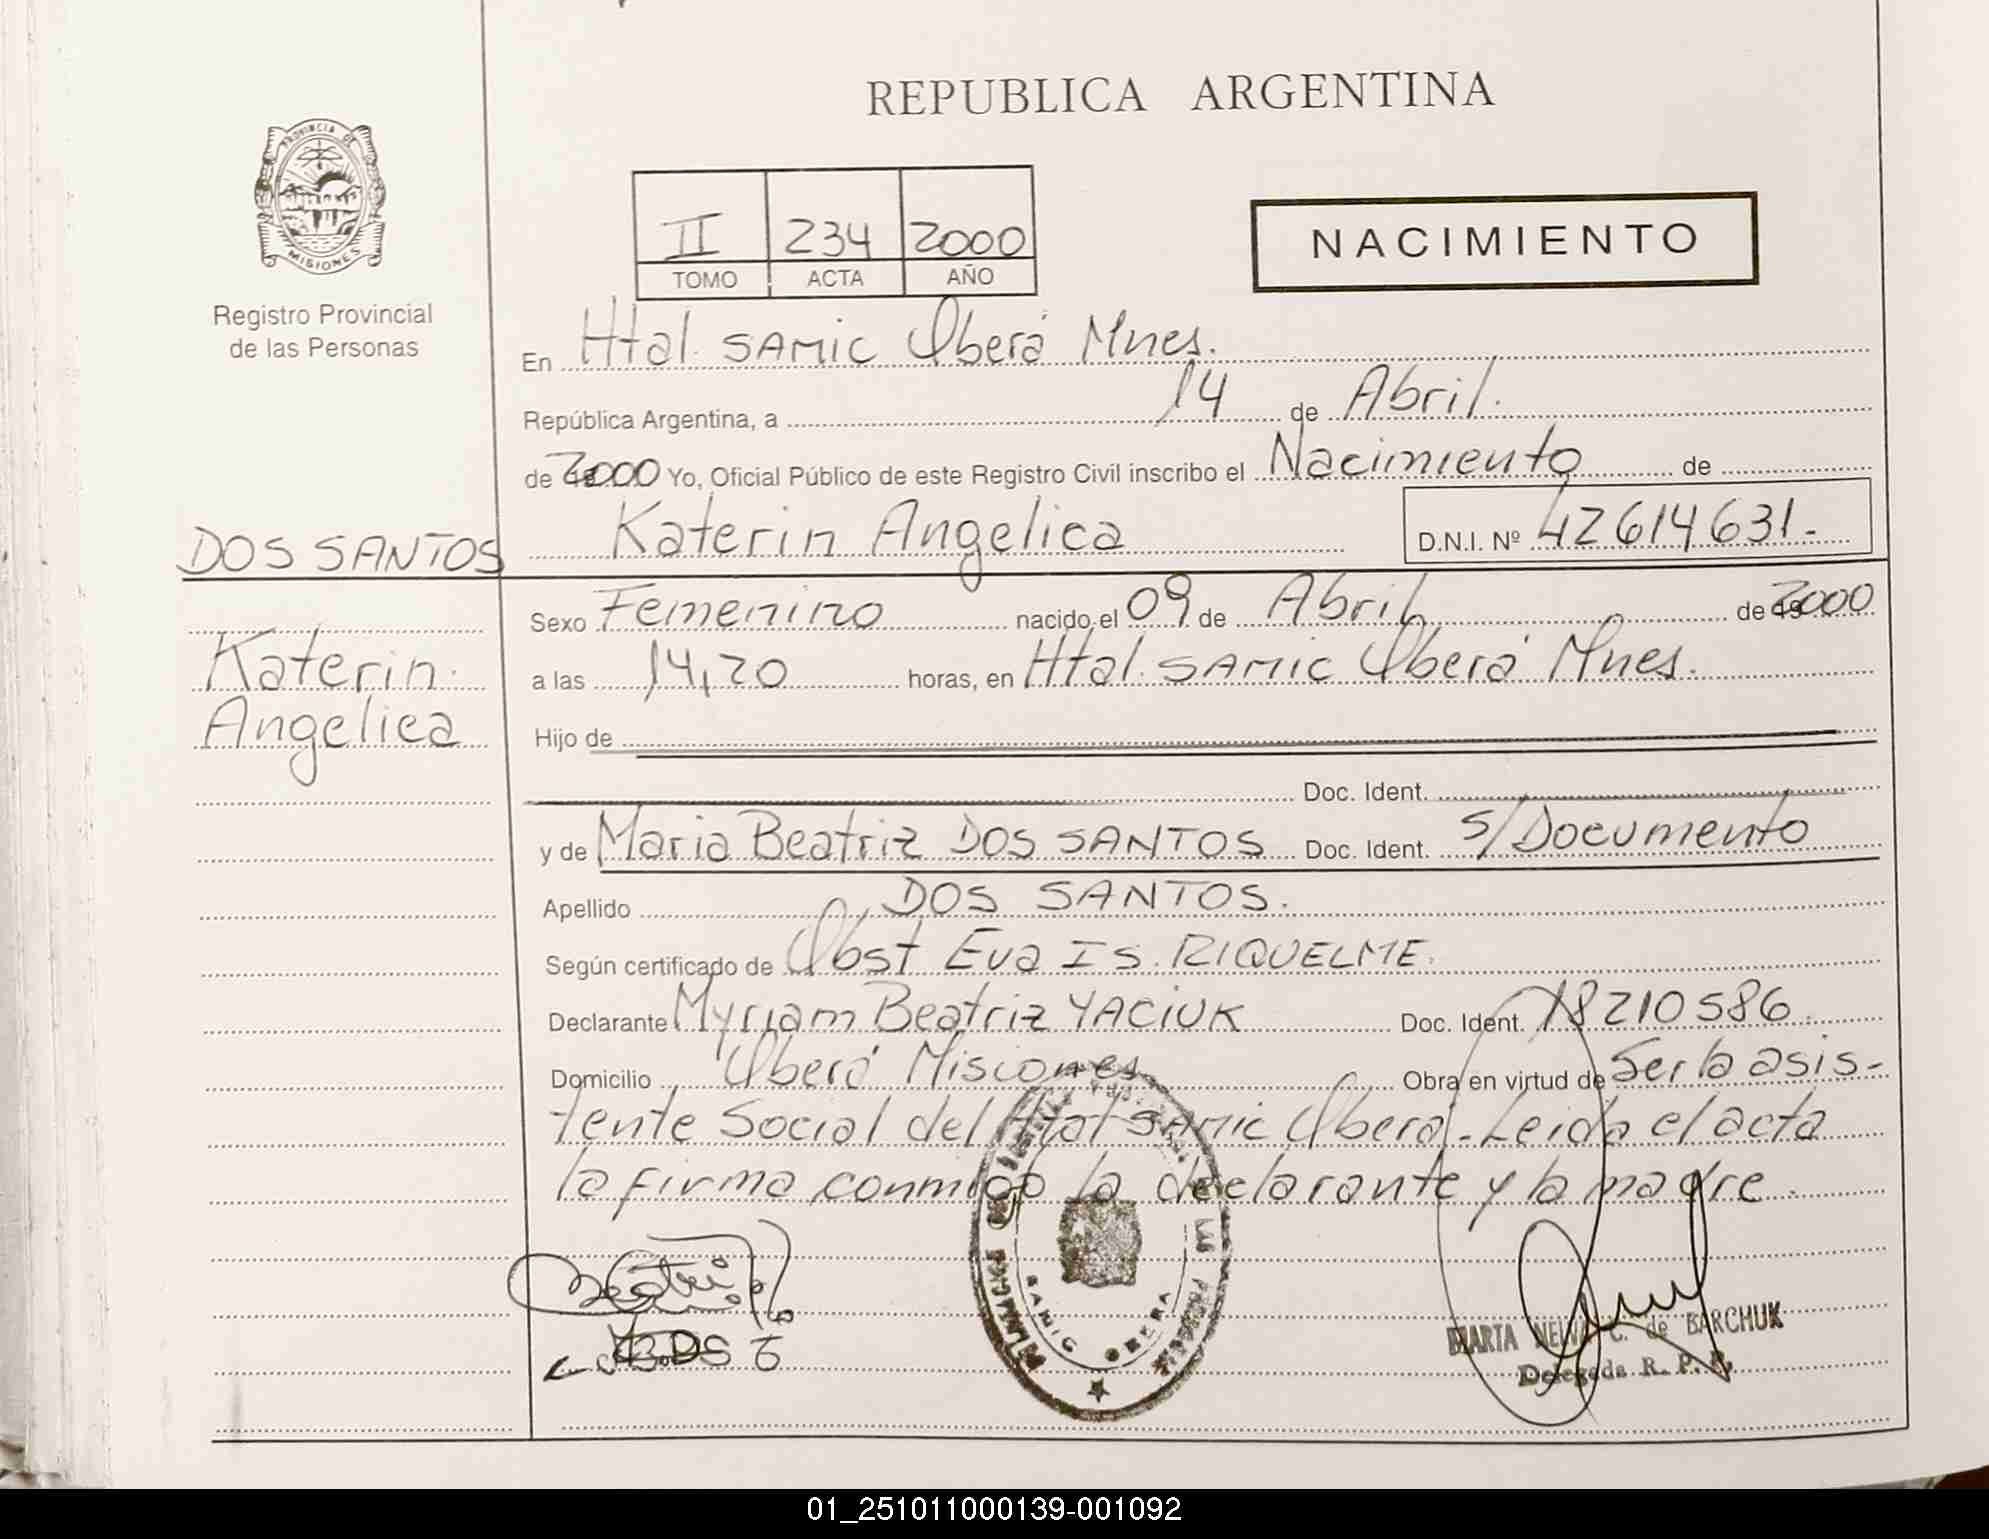 REPUBLICA ARGENTINA
PROVINCIA DE
MISIONES
Registro Provincial
de las Personas
II 234 2000
TOMO ACTA AÑO
NACIMIENTO
En Htal. SAMIC Oberá Mnes.
República Argentina, a 14 de Abril.
de 2000 Yo, Oficial Público de este Registro Civil inscribo el Nacimiento de
DOS SANTOS
Katerin Angelica
D.N.I. Nº 42614631.-
Katerin
Angelica
Sexo Femenino nacido el 09 de Abril de 2000
a las 14,20 horas, en Htal. SAMIC Oberá Mnes.
Hijo de
Doc. Ident.
y de Maria Beatriz DOS SANTOS Doc. Ident. S/Documento
Apellido DOS SANTOS.
Según certificado de Obst Eva Is. RIQUELME.
Declarante Myriam Beatriz YACIUK Doc. Ident. 18210586.
Domicilio Oberá Misiones Obra en virtud de Ser la asis-
tente Social del Htal SAMIC Oberá.- Leida el acta
la firma conmigo la declarante y la madre.
SAMIC OBERA
MARTA NELVA C. de BARCHUK
Delegada R. P. P.
01_251011000139-001092